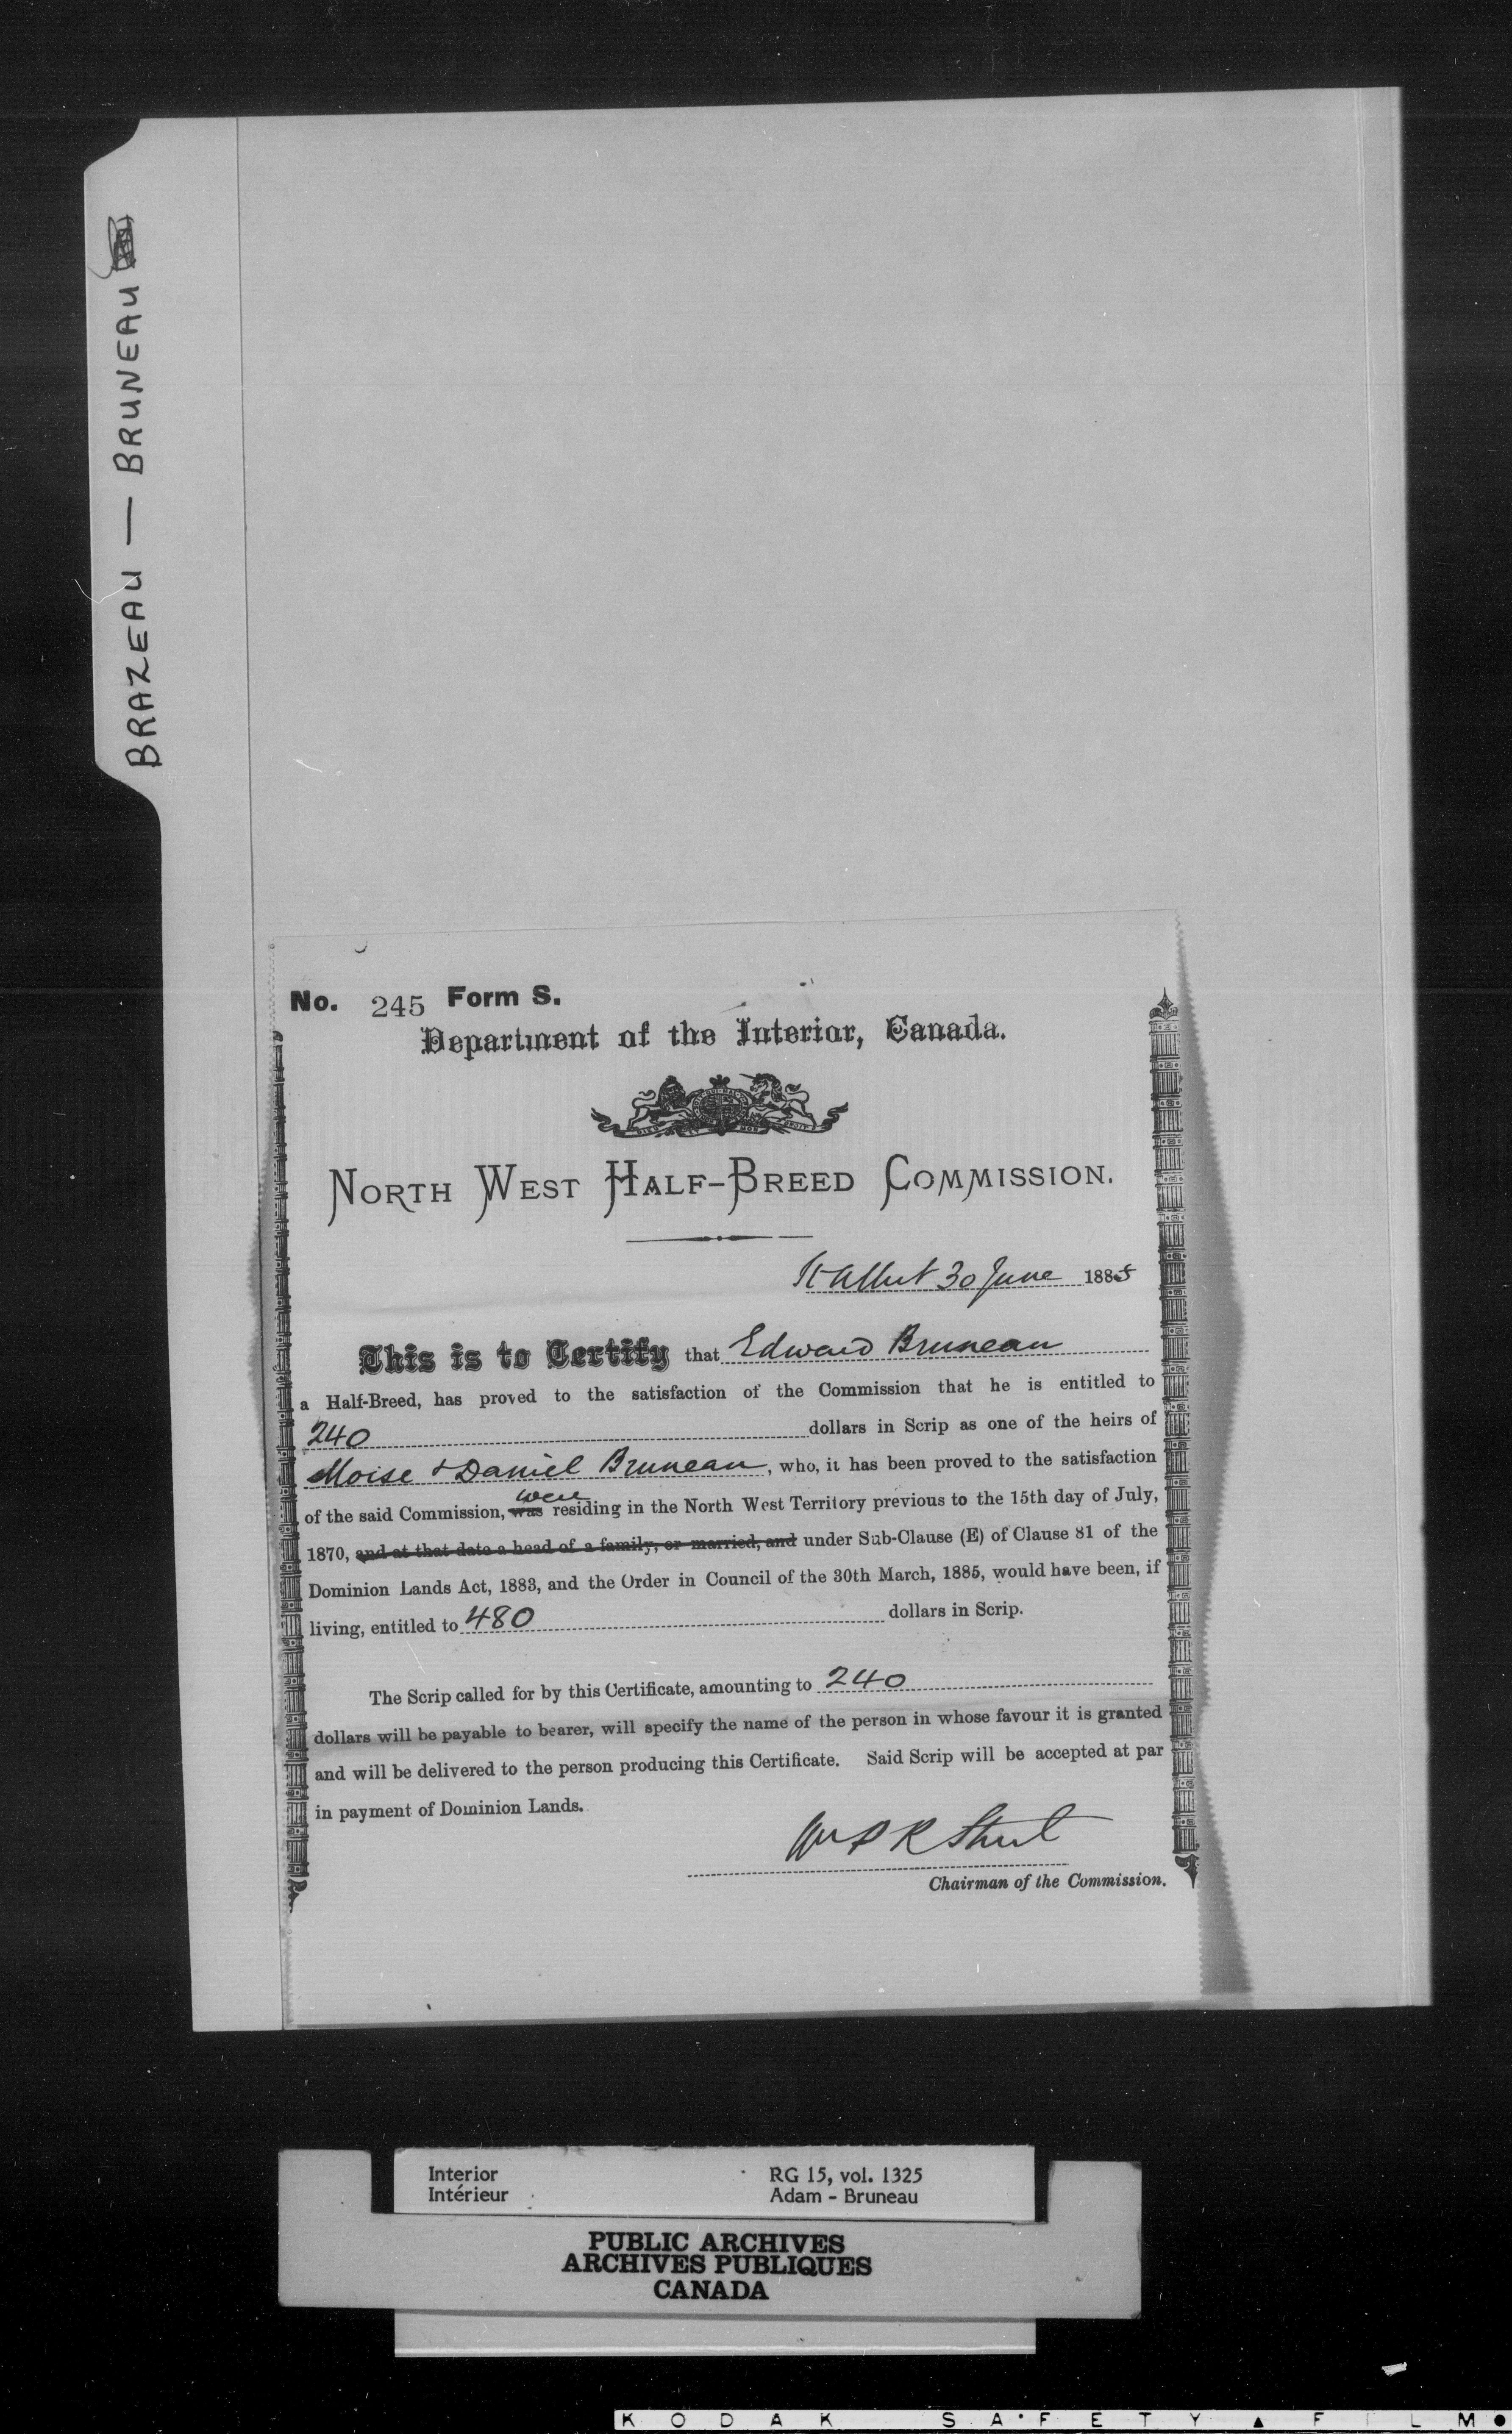 BRAZEAU — BRUNEAU
No. 245 Form S.
Department of the Interior, Canada.
NORTH WEST HALF-BREED COMMISSION.
St Albert 30 June 1885
This is to Certify that Edward Bruneau
a Half-Breed, has proved to the satisfaction of the Commission that he is entitled to
240 dollars in Scrip as one of the heirs of
Moise & Daniel Bruneau, who, it has been proved to the satisfaction
were
of the said Commission, was residing in the North West Territory previous to the 15th day of July,
1870, and at that date a head of a family, or married, and under Sub-Clause (E) of Clause 81 of the
Dominion Lands Act, 1883, and the Order in Council of the 30th March, 1885, would have been, if
living, entitled to 480 dollars in Scrip.
The Scrip called for by this Certificate, amounting to 240
dollars will be payable to bearer, will specify the name of the person in whose favour it is granted
and will be delivered to the person producing this Certificate. Said Scrip will be accepted at par
in payment of Dominion Lands.
Wm P R Street
Chairman of the Commission.
Interior RG 15, vol. 1325
Intérieur Adam - Bruneau
PUBLIC ARCHIVES
ARCHIVES PUBLIQUES
CANADA
KODAK SAFETY ▲ FILM